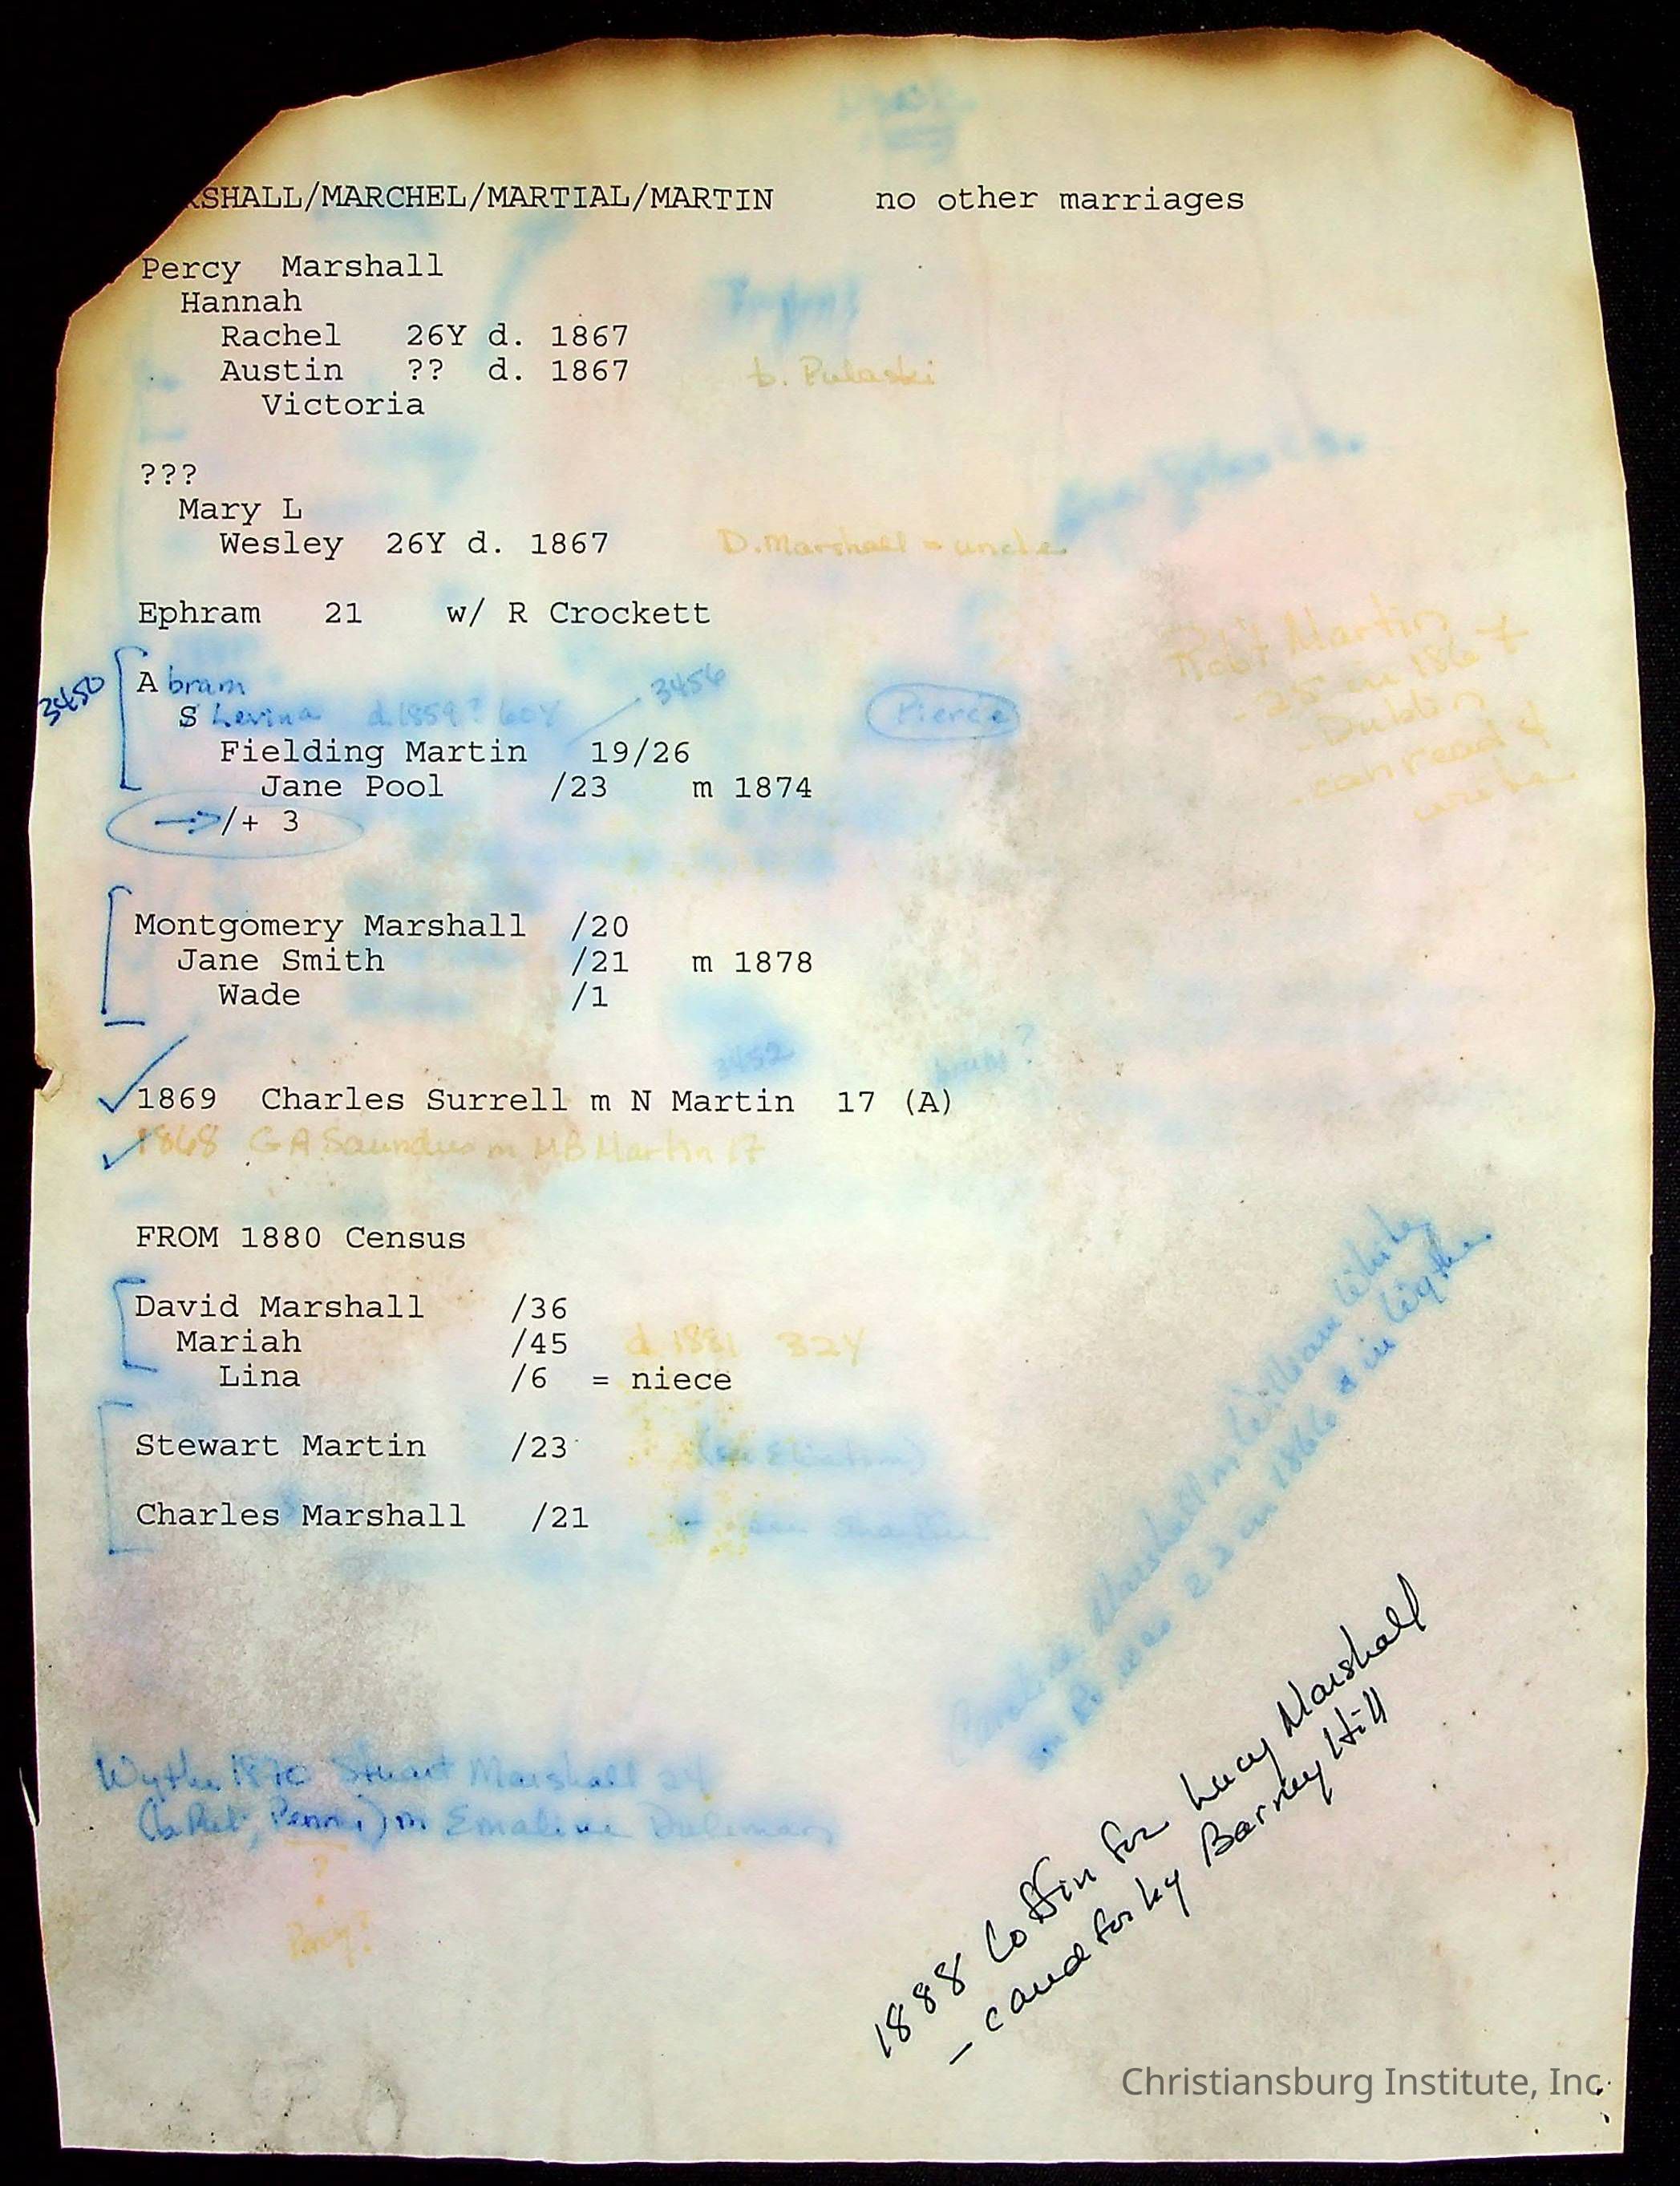 RSHALL/MARCHEL/MARTIAL/MARTIN no other marriages
Percy Marshall
Hannah
Rachel 26Y d. 1867
Austin ?? d. 1867 b. Pulaski
Victoria
???
Mary L
Wesley 26Y d. 1867 D. Marshall = uncle
Ephram 21 w/ R Crockett
Robt Martin
25 in 1867
Dublin
can read &
3450
Abram
S Levina d. 1859? 60Y 3456 Pierce
Fielding Martin 19/26
Jane Pool /23 m 1874
→/+ 3
Montgomery Marshall /20
Jane Smith /21 m 1878
Wade /1
3452
1869 Charles Surrell m N Martin 17 (A)
1868 G A Saunders m MB Martin 17
FROM 1880 Census
David Marshall /36
Mariah /45 d. 1881 32Y
Lina /6 = niece
Stewart Martin /23
Charles Marshall /21
Marshall m William White
was 22 in 1866 & in Wythe
Wythe 1870 Stuart Marshall 24
(b. Pul; Penni) m Emaline
?
Percy?
1888 Coffin for Lucy Marshall
- caued for by Barney Hill
Christiansburg Institute, Inc.